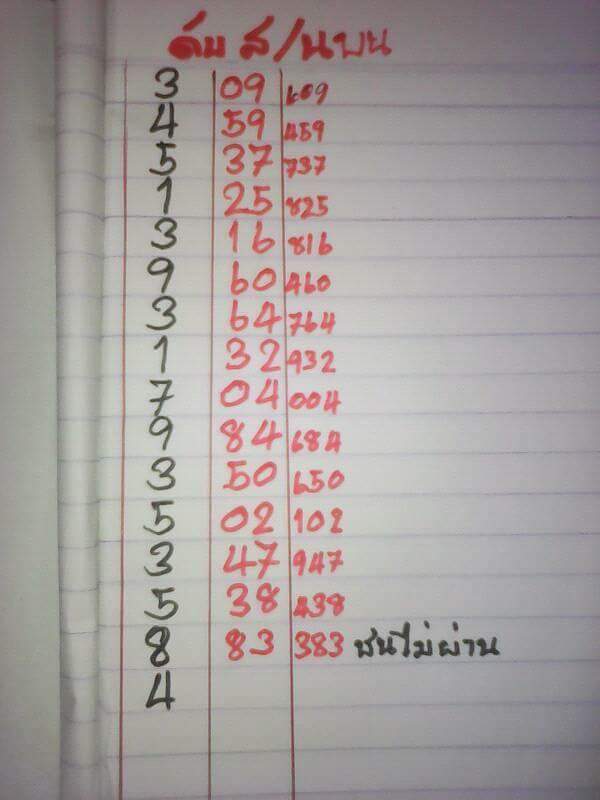 ดับ ส/นพบน
3 09 609
4 59 459
5 37 737
1 25 825
3 16 816
9 60 460
3 64 764
1 32 932
7 04 004
9 84 684
3 50 650
5 02 102
3 47 947
5 38 438
8 83 383 ชนไม่ผ่าน
4